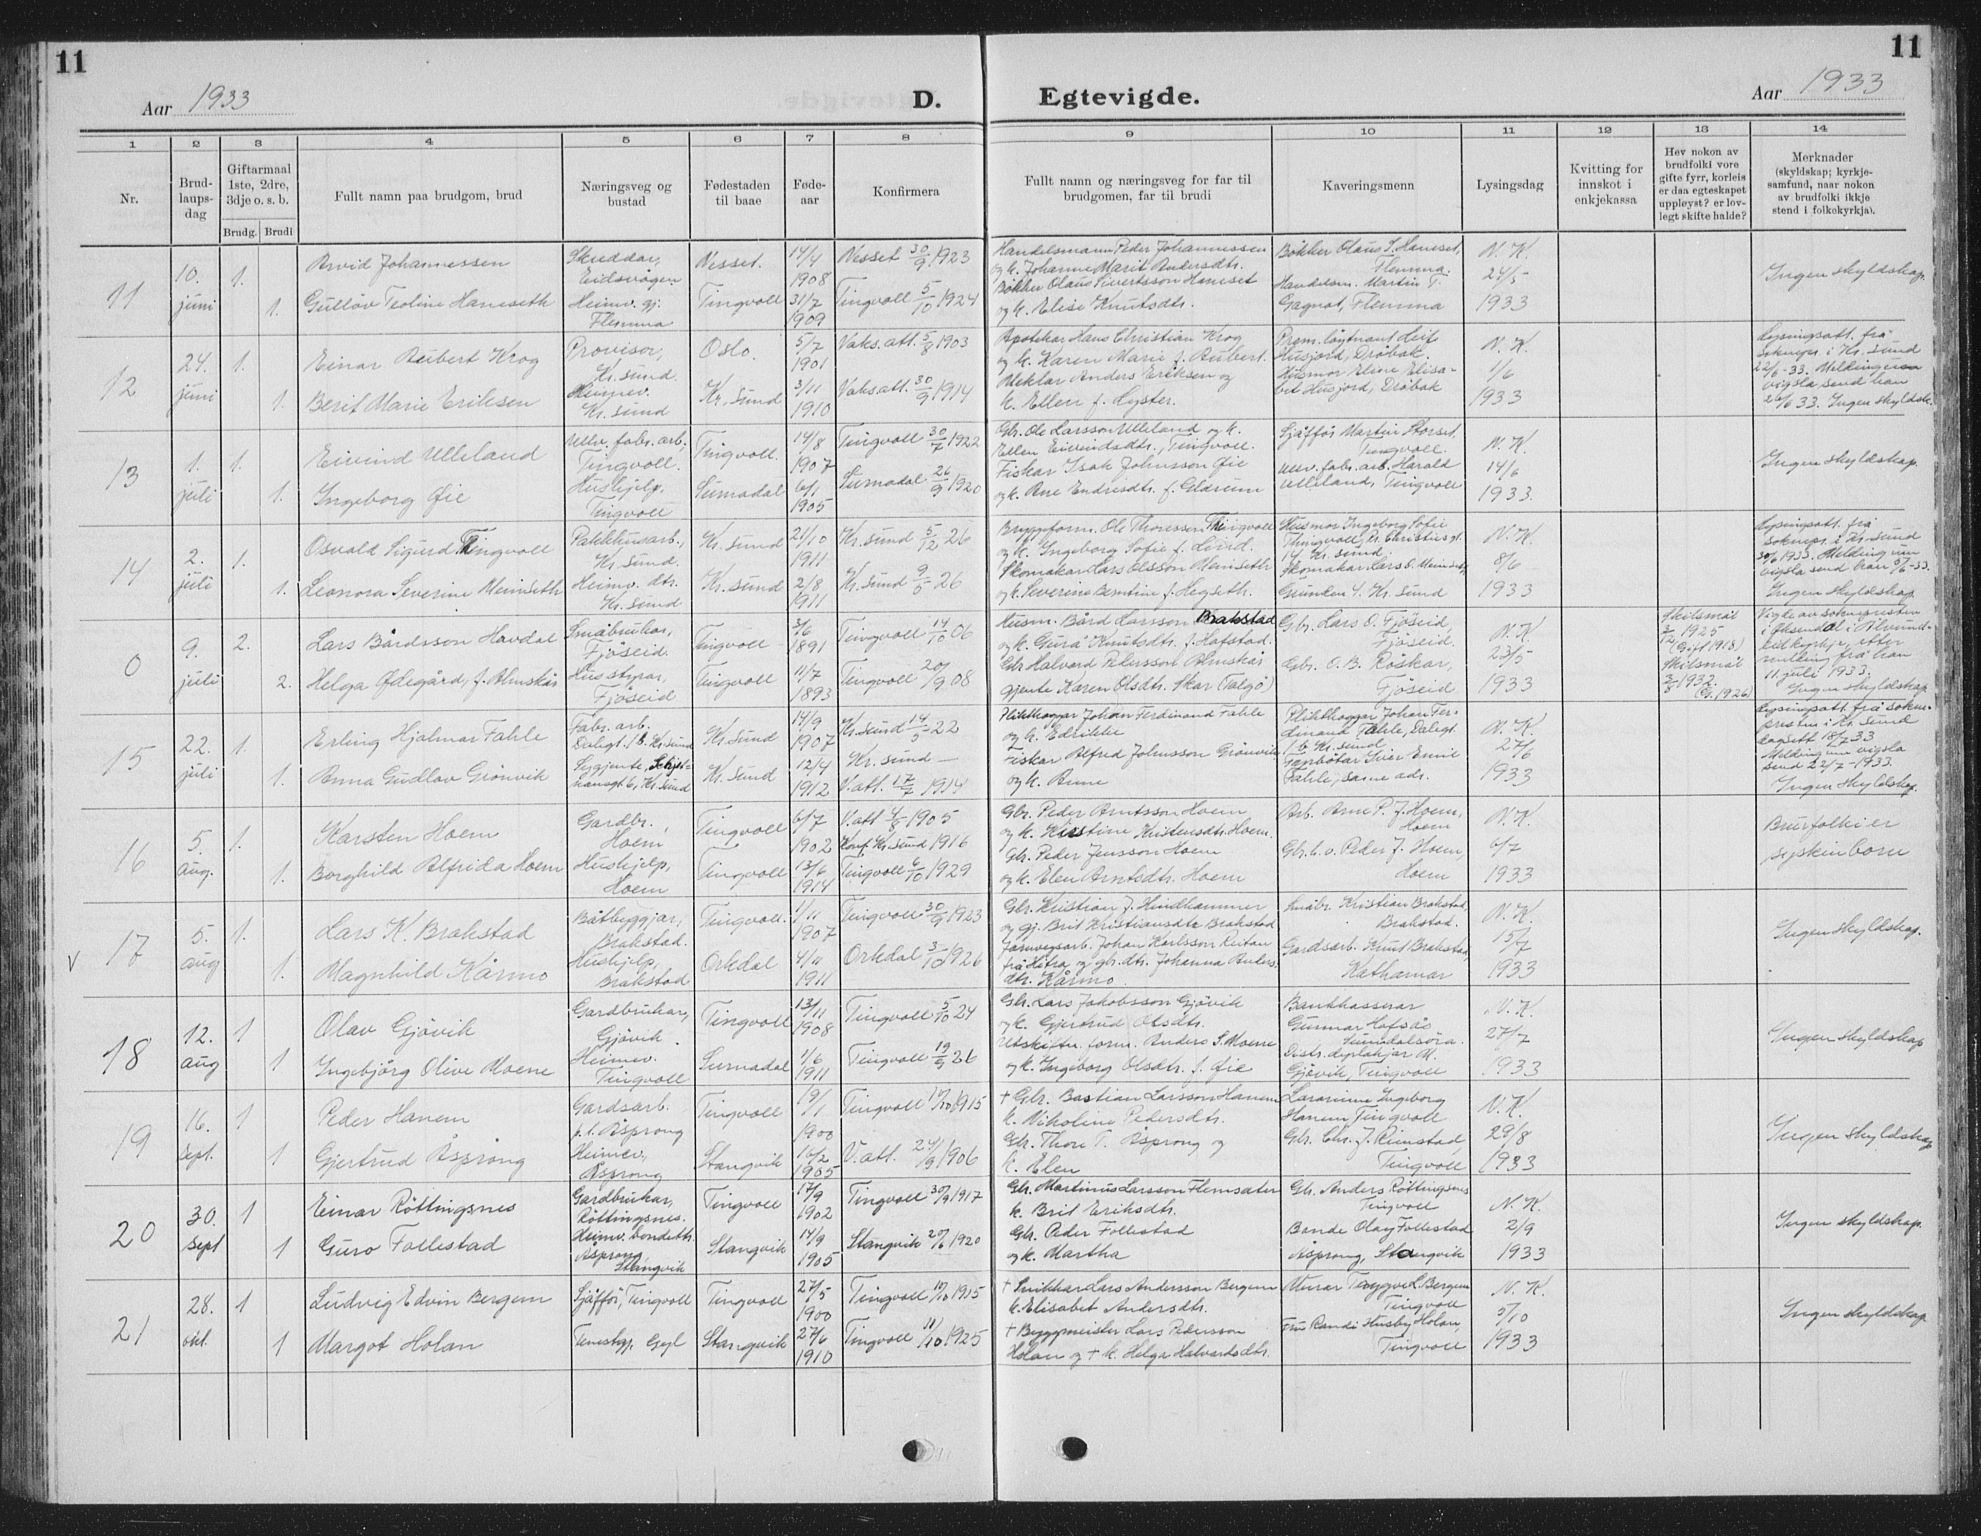 11
11
Aar 1933
D.
Egtevigde.
Aar 1933
1 2 3 4 5 6 7 8 9 10 11 12 13 14
Nr.
Brud-
laups-
dag
Giftarmaal
1ste, 2dre,
3dje o. s. b.
Brudg. Brudi
Fullt namn paa brudgom, brud
Næringsveg og
bustad
Fødestaden
til baae
Føde-
aar
Konfirmera
Fullt namn og næringsveg for far til
brudgomen, far til brudi
Kaveringsmenn
Lysingsdag
Kvitting for
innskot i
enkjekassa
Hev nokon av
brudfolki vore
gifte fyrr, korleis
er daa egteskapet
uppløyst? er lov-
legt skifte halde?
Merknader
(skyldskap; kyrkje-
samfund, naar nokon
av brudfolki ikkje
stend i folkekyrkja).
11
10.
juni
1.
Arvid Johannessen
Skreddar,
Eidsvågen
Nesset.
14/4
1908
Nesset 30/9 1923
1.
Gulløv Teoline Haneseth
Heimv. gj.
Flemma
Tingvoll
31/7
1909
Tingvoll 5/10 1924
Handelsmann Peder Johannessen
og k. Johanne Marit Andersdtr.
Bøkker Olaus Sivertsson Haneset
og k. Elise Knutsdtr.
Bøkker Olaus S. Haneset,
Flemma.
Handelsm. Martin T.
Gagnat, Flemma
N. K.
24/5
1933
Ingen skyldskap.
12
24.
juni
1.
Einar Rubert Krog
Provisor,
Kr.sund.
Oslo.
5/7
1901
Vaks.att. 5/8 1903
1.
Berit Marie Eriksen
Heimev.
Kr.sund
Kr.sund
3/11
1910
Vaks.att. 30/9 1914
Apotekar Hans Christian Krog
og k. Karen Marie f. Rubert.
Meklar Anders Eriksen og
k. Ellen f. Hyster.
Prem.løytnant Leif
Husjord, Drøbak.
Husmor Eline Elisa-
bet Husjord, Drøbak
N. K.
1/6
1933
Lysingsatt. frå
soknepr. i Kr.sund
22/6-33. Melding um
vigsla send han
26/6 33. Ingen skyldsk.
13
1.
juli
1.
Eivind Ulleland
Ullv. fabr. arb.
Tingvoll.
Tingvoll.
14/8
1907
Tingvoll 30/7 1922
1.
Ingeborg Øie
Hushjelp,
Tingvoll
Surnadal
6/1
1905
Surnadal 26/9 1920
Gbr. Ole Larsson Ulleland og k.
Ellen Eivindsdtr., Tingvoll.
Fiskar Isak Johnsson Øie
og k. Ane Endresdtr. f. Glærum
Sjåffør Martin Storset,
Tingvoll.
Ullv. fabr. arb. Harald
Ulleland, Tingvoll
N. K.
14/6
1933.
Ingen skyldskap.
14
2.
juli
1.
Osvald Sigurd Thingvoll
Pakkhusarb.,
Kr.sund.
Kr.sund
21/10
1911
Kr.sund 5/12 26
1.
Leonora Severine Meiniseth
Heimv. dtr.
Kr.sund
Kr.sund
2/8
1911
Kr.sund 9/5 26
Bryggeform. Ole Thoressen Thingvoll
og k. Ingeborg Sofie f. Lind.
Skomakar Lars Olsson Meiniseth
og k. Severine Berntine f. Hegseth.
Husmor Ingeborg Sofie
Thingvoll, St. Christies gt.
14, Kr.sund.
Skomakar Lars O. Meiniseth,
Grunken 4, Kr.sund
N. K.
8/6
1933
Lysingsatt. frå
soknepr. i Kr.sund
30/6 1933. Melding um
vigsla send han
Ingen skyldskap
0
9.
juli
2.
Lars Bårdsson Havdal
Småbrukar,
Fjøseid.
Tingvoll
3/6
1891
Tingvoll 14/10 06
2.
Helga Ødegård, f. Almskår
Husstyrar,
Fjøseid
Tingvoll
11/7
1893
Tingvoll 20/9 08
Husm. Bård Larsson Brakstad
og k. Gurå Knutsdtr. f. Hafstad.
Gbr. Halvard Pedersson Almskår
gjente Karen Olsdtr. Skar (Talgø)
Gbr. Lars O. Fjøseid,
Fjøseid.
Gbr. O. B. Roskar,
Fjøseid
N. K.
23/5
1933
Skilsmål
3/12 1925
(Gift 1918)
Skilsmål
3/8 1932.
(G. 1926)
Vigte av soknepresten
i Øksendal i Ålvund-
eid kyrkje, etter
melding frå han
11. juli 1933.
Ingen skyldskap.
15
22.
juli
1.
Erling Hjalmar Fahle
Fabr. arb.
Dalegt. 1 b. Kr.sund
Kr.sund
14/9
1907
Kr.sund 14/5 22
1.
Anna Gudlov Grønvik
Sygjente,
Kr.sund
Kr.sund
12/4
1912
Kr.sund —
V.att. 17/7 1914
Plikthoggar Johan Ferdinand Fahle
og k. Edlikke
Fiskar Alfred Johnsson Grønvik
og k. Anne
Plikthoggar Johan Fer-
dinand Fahle, Dalegt.
1 b Kr.sund
Garnbøtar Iver Emil
Fahle, same adr.
N. K.
27/6
1933
Lysingsatt. frå sokne-
presten i Kr.sund
dagsett 18/7 33
Melding um vigsla
send 22/7-1933.
Ingen skyldskap.
16
5.
aug.
1.
Karsten Hoem
Gardbr.,
Hoem
Tingvoll
6/7
1902
V.att 4/8 1905
Konf. Kr.sund 1916
1.
Borghild Alfrida Hoem
Hushjelp,
Hoem
Tingvoll
13/6
1914
Tingvoll 6/10 1929
Gbr. Peder Arntsson Hoem
og k. Kirstine Kristensdtr. Hoem.
Gbr. Peder Jensson Hoem
og k. Elen Arntsdtr. Hoem
Arb. Arne P. J. Hoem,
Hoem
Gbr. h.v. Peder J. Hoem,
Hoem
N. K.
6/7
1933
Brurfolki er
syskinborn
V
17
5.
aug
1.
Lars K. Brakstad
Båtbyggjar,
Brakstad.
Tingvoll.
1/11
1907
Tingvoll 30/9 1923
1.
Magnhild Kårmo
Hushjelp,
Brakstad
Orkdal
4/11
1911
Orkdal 3/10 1926
Gbr. Kristian J. Hindhammer
og gj. Brit Kristiansdtr Brakstad
Jarnvegsarb. Johan Karlsson Reitan
frå Hitra og gbr.dtr. Johanna Anders-
dtr. Kårmo.
Småbr. Kristian Brakstad,
Brakstad.
Gardsarb. Knut Brakstad
Kathamar
N. K.
15/7
1933
Ingen skyldskap.
18
12.
aug
1
Olav Gjøvik
Gardbrukar,
Gjøvik
Tingvoll
13/11
1908
Tingvoll 5/10 24
1
Ingebjørg Olive Moene
Heimev.
Tingvoll
Surnadal
1/6
1911
Tingvoll 19/9 26
Gbr. Lars Jakobsson Gjøvik
og k. Gjertrud Olsdtr.
Utskiftn. form. Anders S. Moene
og k. Ingeborg Olsdtr. f. Øie
Bankkasserar
Gunnar Hafsås
Sunndalsøra.
Distr. dyrlækjar M.
Gjøvik, Tingvoll
N. K.
27/7
1933
Ingen skyldskap
19
16.
sept.
1
Peder Hanem
Gardsarb.
p.t. Åsprong
Tingvoll
19/1
1900
Tingvoll 17/10 1915
1
Gjertrud Åsprong
Heimev,
Åsprong
Stangvik
16/2
1905
V.att. 24/9 1906
† Gbr. Bastian Larsson Hanem
k. Nikoline Pedersdtr.
Gbr. Thore T. Åsprong og
k. Elen
Lærarinne Ingeborg
Hanem Tingvoll
Gbr. Chr. J. Rimstad,
Tingvoll
N. K.
29/8
1933
Ingen skyldskap
20
30.
sept
1
Einar Røttingsnes
Gardbrukar,
Røttingsnes.
Tingvoll
17/9
1902
Tingvoll 30/9 1917
1
Guro Follestad
Heimv. bondedtr.
Åsprong,
Stangvik
Stangvik
14/9
1905
Stangvik 20/6 1920
Gbr. Martinus Larsson Flemsæter
k. Brit Eriksdtr.
Gbr. Peder Follestad
og k. Martha
Gbr. Anders Røttingsnes
Tingvoll
Bonde Olav Follestad
Åsprong, Stangvik
N. K.
2/9
1933
Ingen skyldskap.
21
28.
okt.
1
Ludvig Edvin Bergem
Sjåffør, Tingvoll
Tingvoll
27/5
1900
Tingvoll 17/10 1915
1
Margot Holan
Tenestgj. Gyl
Stangvik
27/6
1910
Tingvoll 11/10 1925
† Snikkar Lars Andersson Bergem
k. Elisabet Andersdtr.
† Byggmeister Lars Pedersson
Holan og † k. Helga Halvardsdtr.
Murar Trygve L. Bergem
Tingvoll
Fru Randi Husby Holan,
Tingvoll
N. K.
5/10
1933
Ingen skyldskap